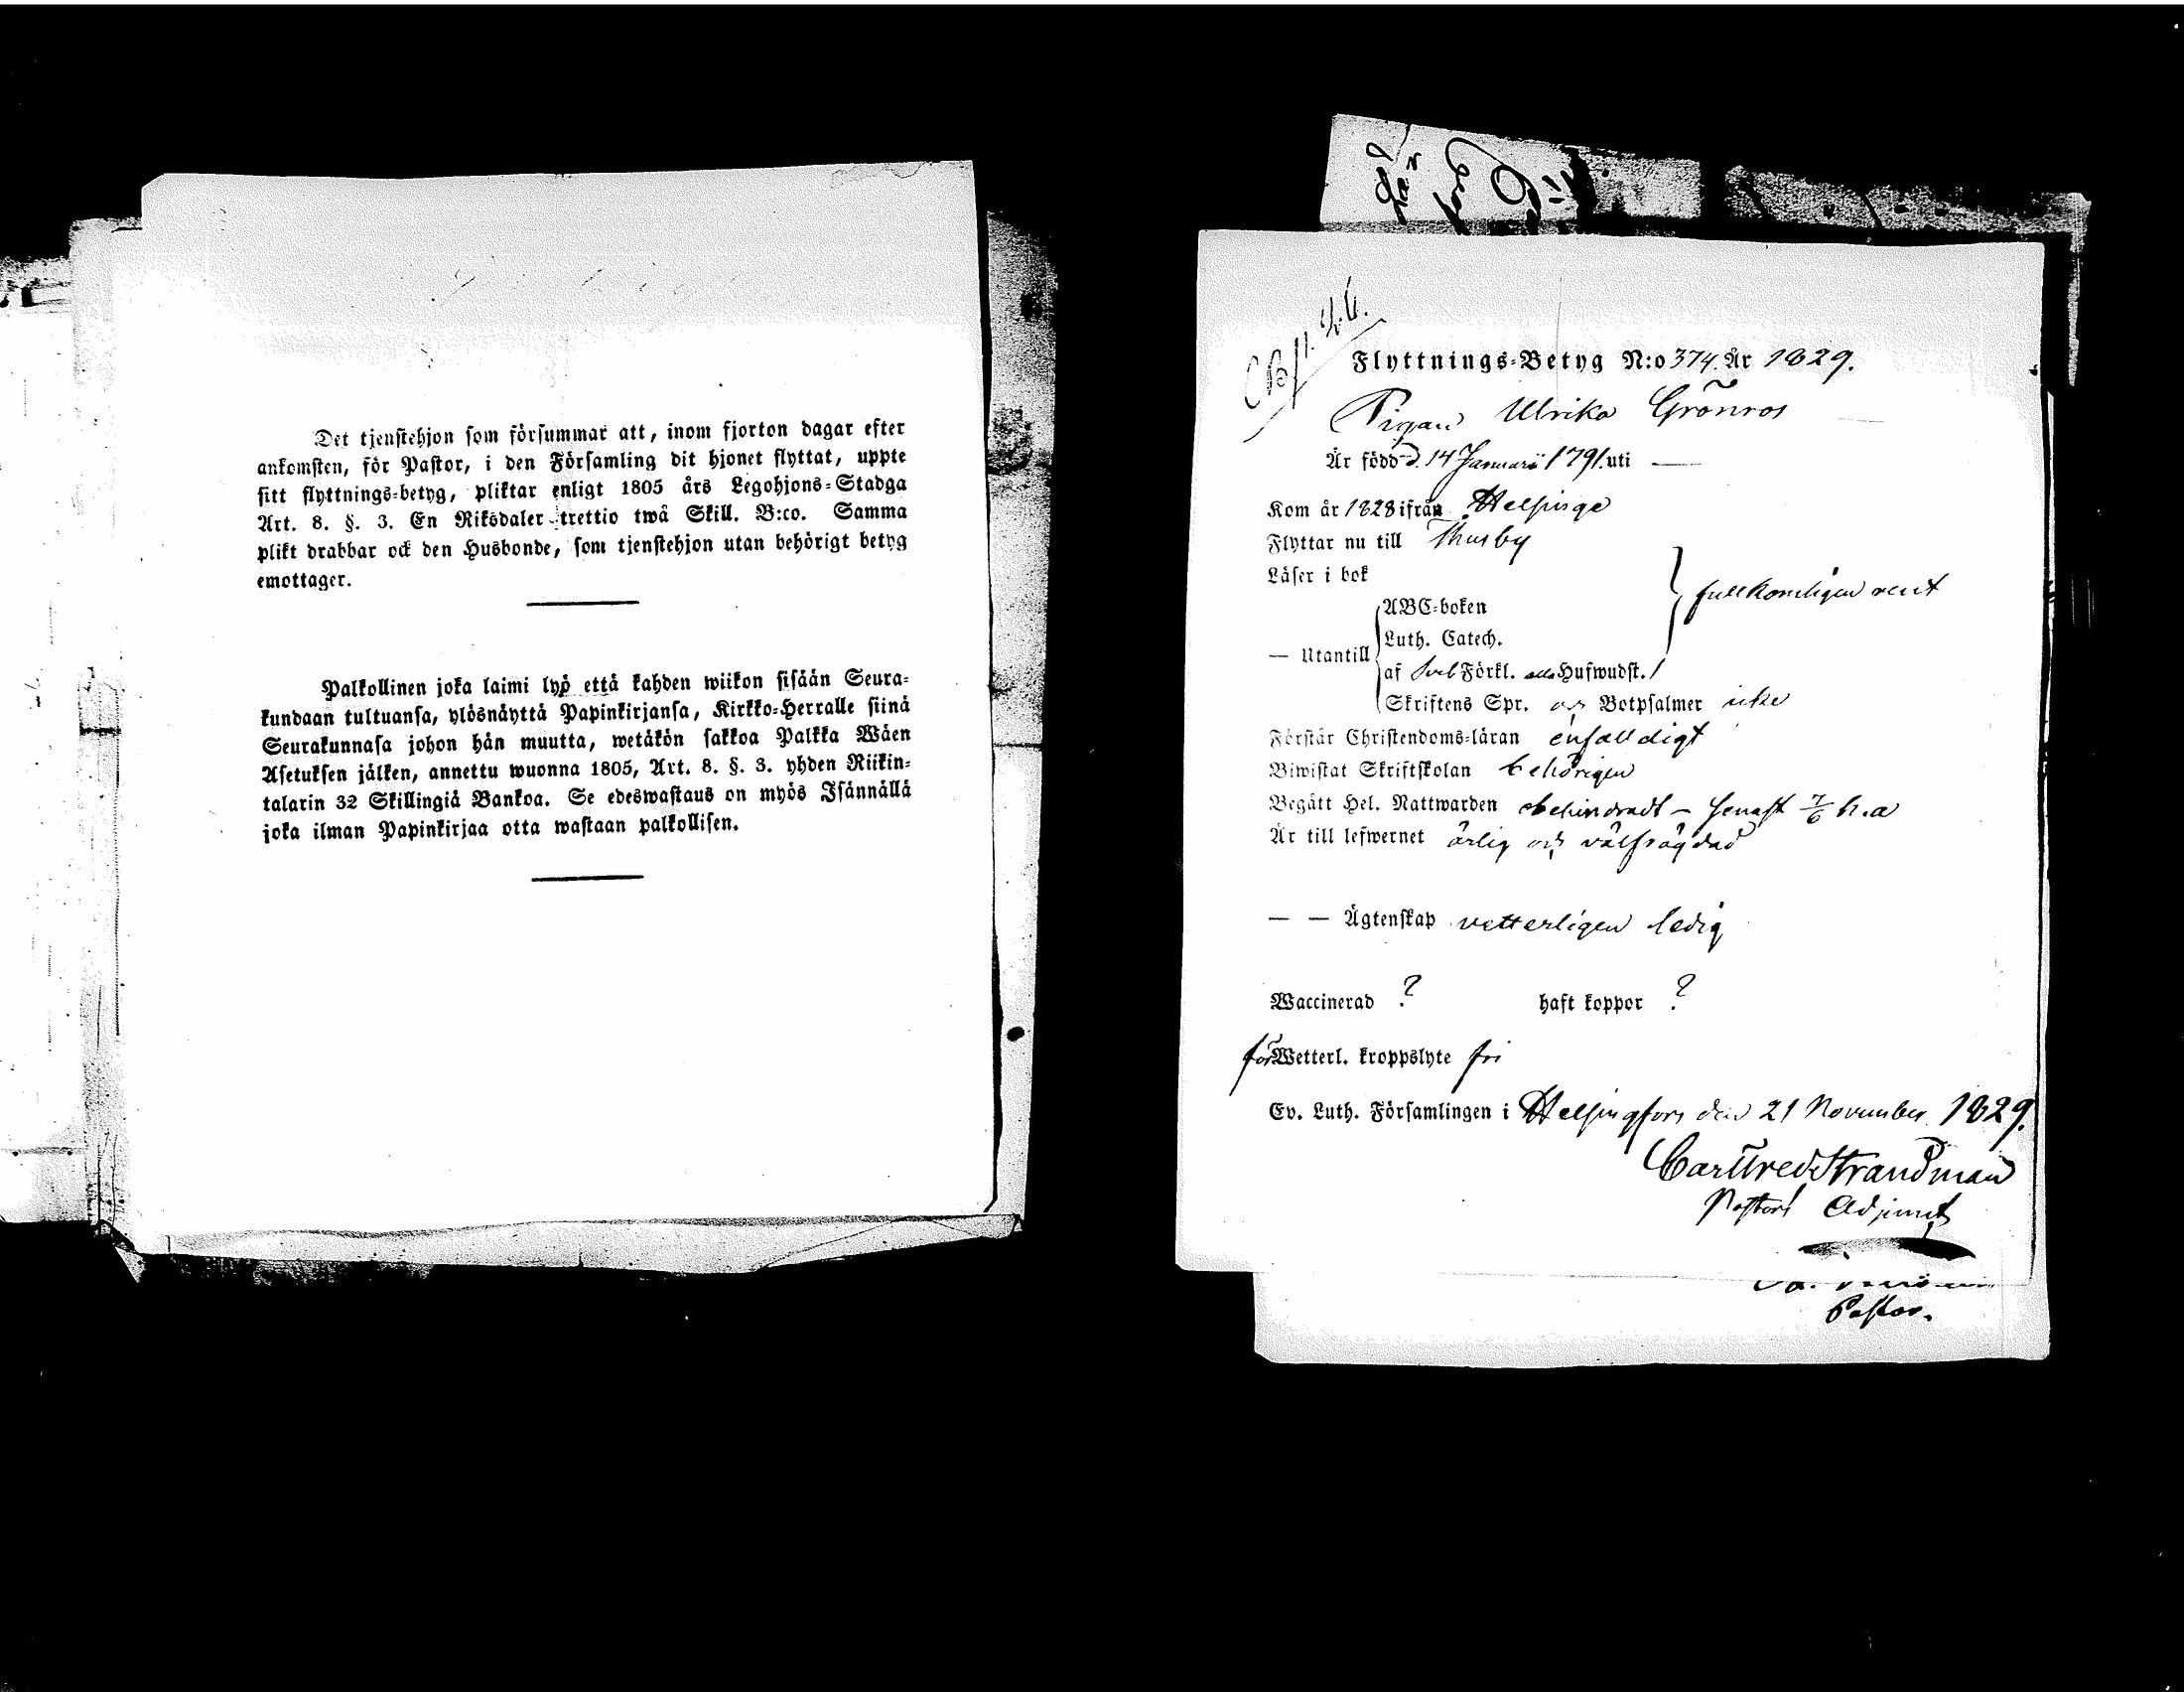 Det tjenstehjon som försummar att, inom fjorton dagar efter
ankomsten, för Pastor, i den Församling dit hjonet flyttat, uppte
sitt flyttnings-betyg, pliktar enligt 1805 års Legohjons-Stadga
Art. 8. §. 3. En Riksdaler trettio twå Skill. B:co. Samma
plikt drabbar ock den Husbonde, som tjenstehjon utan behörigt betyg
emottager.
Palkollinen joka laimi lyö että kahden wiikon sisään Seura-
kundaan tultuansa, ylösnäyttä Papinkirjansa, Kirkko-Herralle siinä
Seurakunnasa johon hän muutta, wetäkön sakkoa Palkka Wäen
Asetuksen jälken, annettu wuonna 1805, Art. 8. §. 3. yhden Riikin-
talarin 32 Skillingiä Bankoa. Se edeswastaus on myös Isännällä
joka ilman Papinkirjaa otta wastaan palkollisen.
Flyttnings-Betyg N:o 374. År 1829.
Pigan Ulrika Grönros
Är född d. 14 Januarii 1791. uti —
Kom år 1828 ifrån Helsinge
Flyttar nu till Thusby
Läser i bok
ABC-boken
fullkomligen rent
Luth. Catech.
— Utantill
af Förkl. Hufwudst.
Skriftens Spr. och Botpsalmer icke
Förstår Christendoms-läran enfalldigt
Biwistat Skriftskolan behörigen
Begått Hel. Nattwarden obehindradt – senast 7/6 h.a
Är till lefwernet ärlig och välfrägdad
— — Ägtenskap vetterligen ledig
Waccinerad ? haft koppor ?
för Wetterl. kroppslyte fri
Ev. Luth. Församlingen i Helsingfors den 21 November 1829.
Carl Fred Strandman
Pastors Adjunct
Pastor.